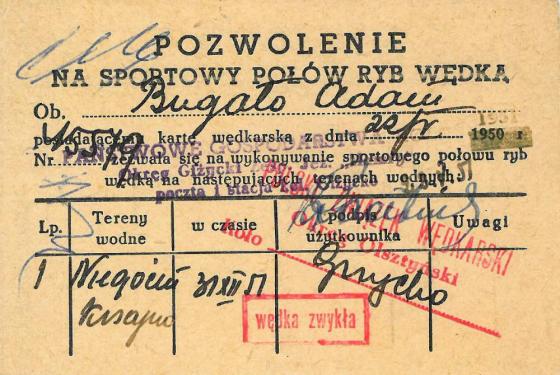 POZWOLENIE
NA SPORTOWY POŁÓW RYB WĘDKĄ
Ob. Bugało Adam
posiadającemu kartę wędkarską z dnia 22/V 1950 r. 1951
Nr. zezwala się na wykonywanie sportowego połowu ryb
PAŃSTWOWE GOSPODARSTWO
Okręg Giżycki
wędką na następujących terenach wodnych:
poczta i stacja kol. Giżycko
Lp. Tereny wodne w czasie podpis użytkownika Uwagi
WĘDKARSKI
Okręg Olsztyński
Koło
1 Niegocin 31 XII 51 Giżycko
Kisajno
wędka zwykła